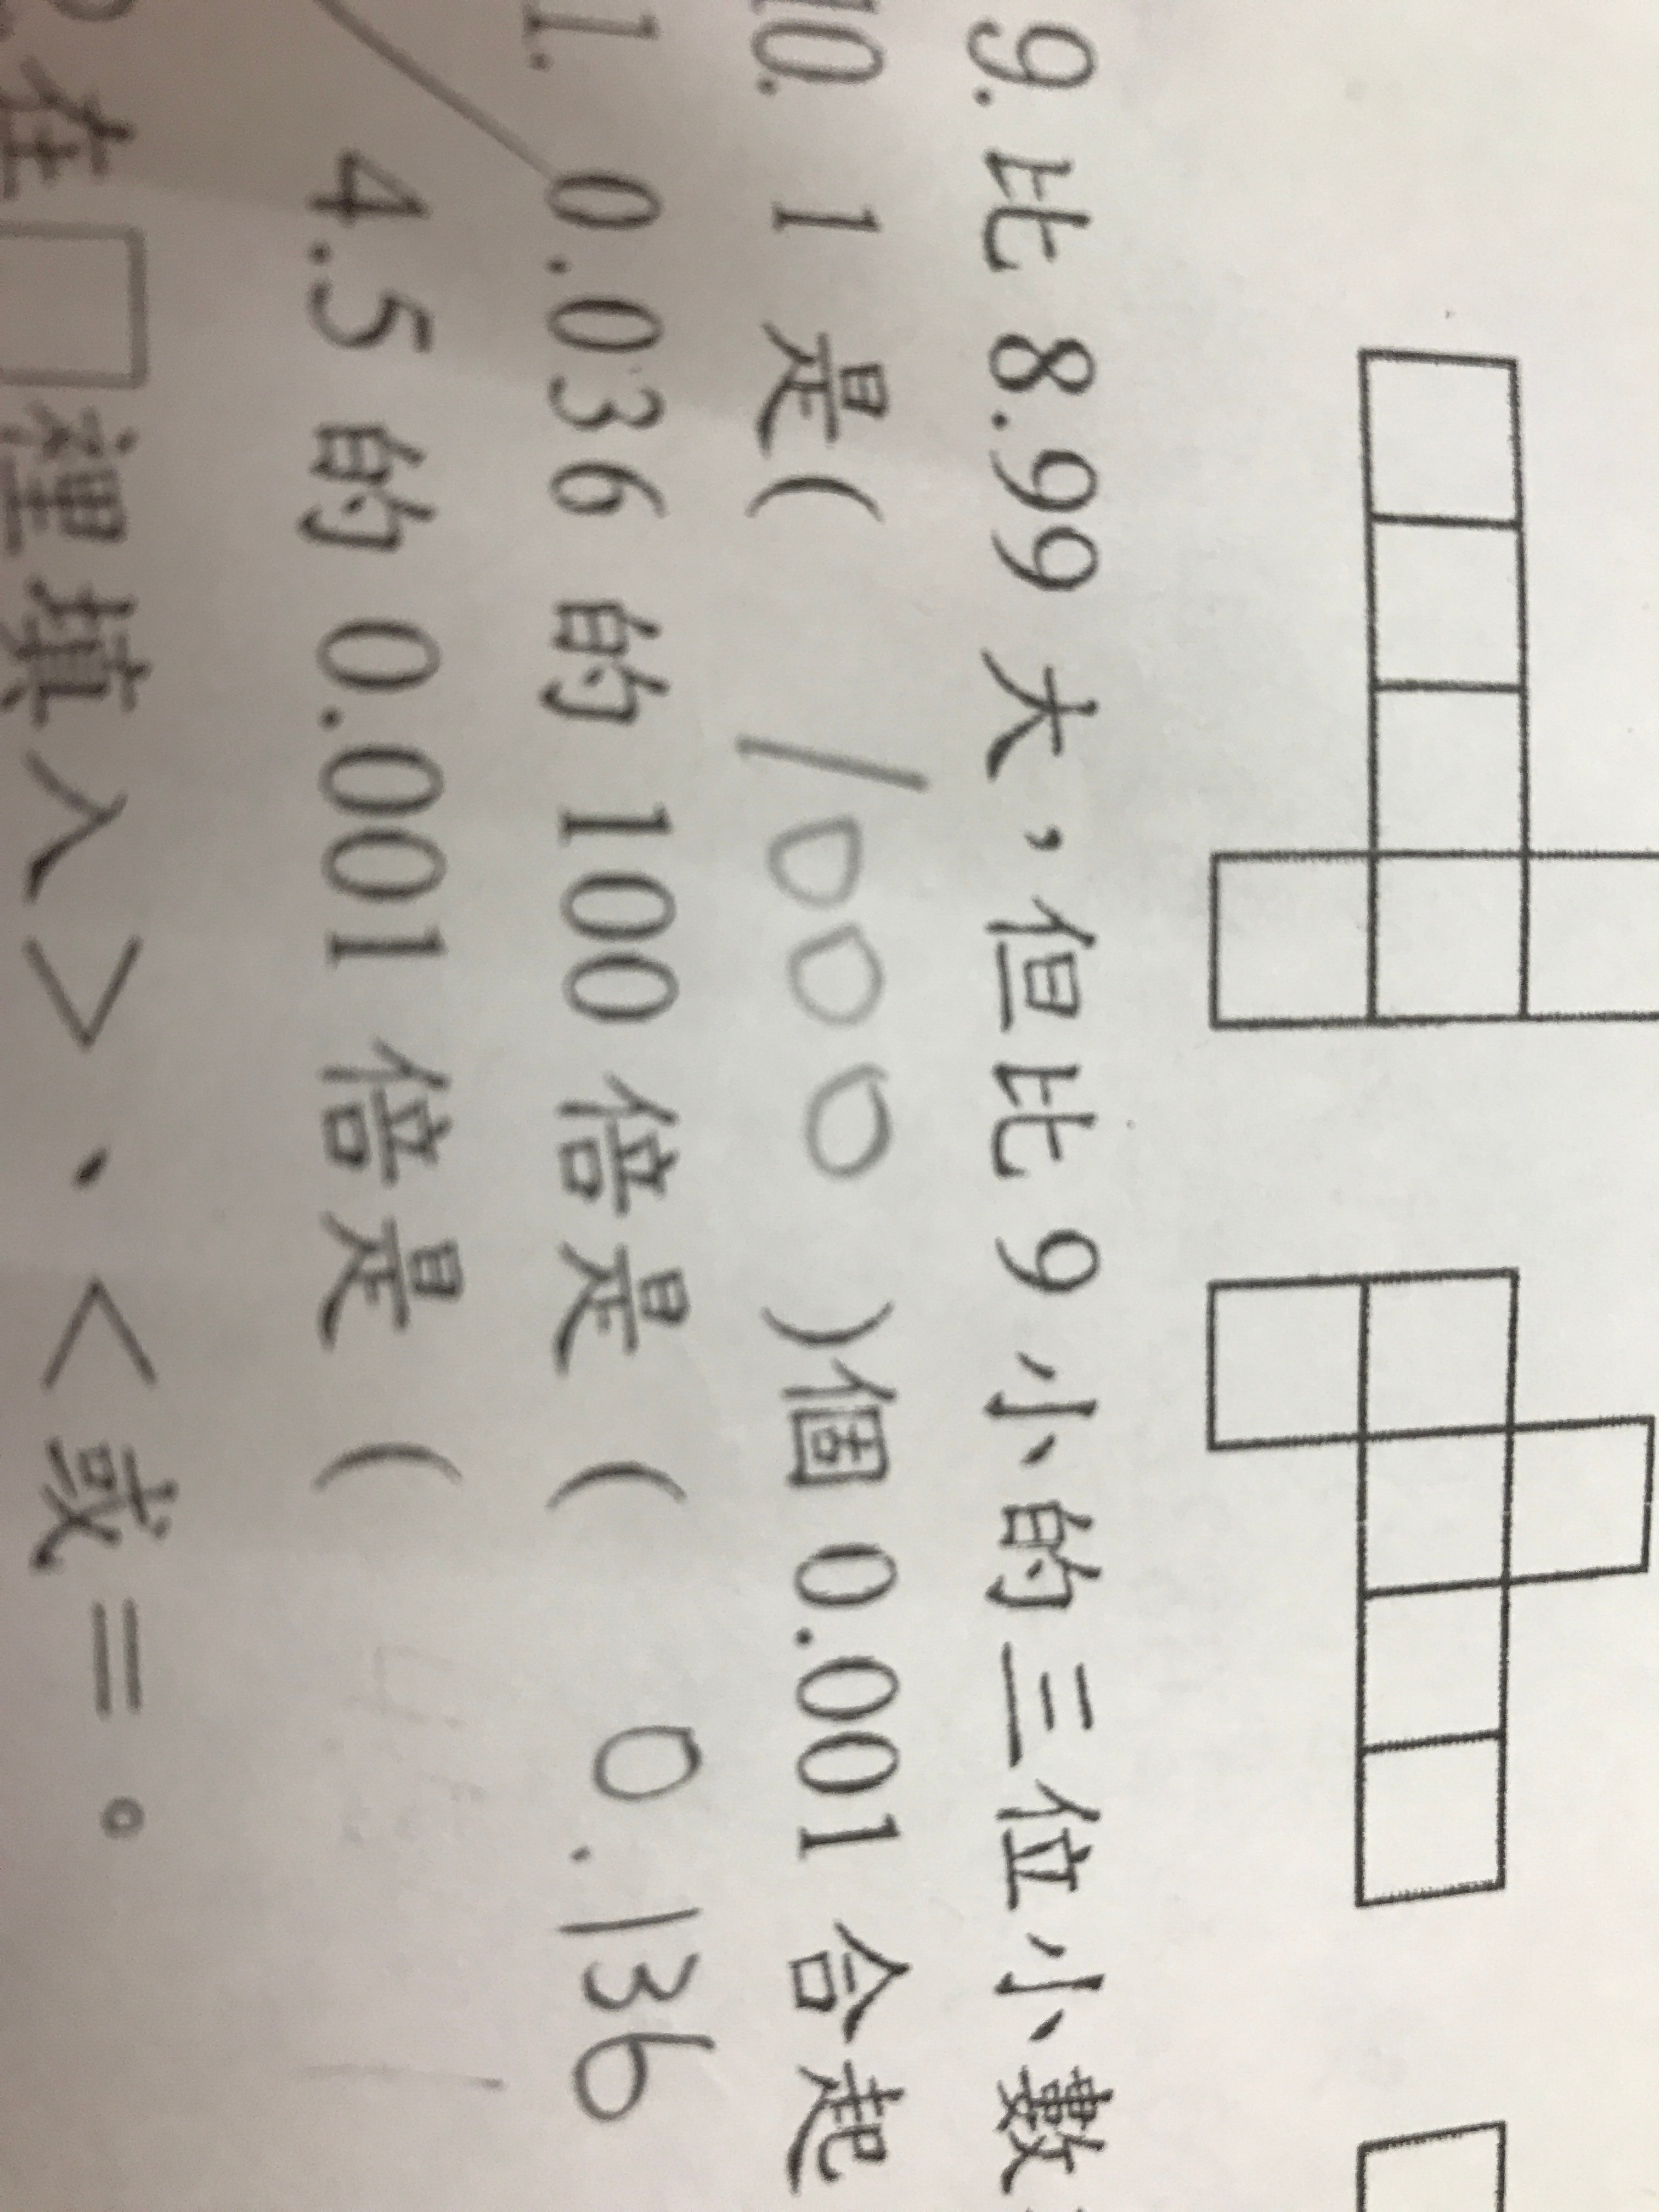 9. 比 8.99 大，但比 9 小的三位小數
10. 1 是( 1000 )個 0.001 合起
1. 0.036 的 100 倍是 ( 0.136
4.5 的 0.001 倍是 (
在□裡填入＞、＜或＝。